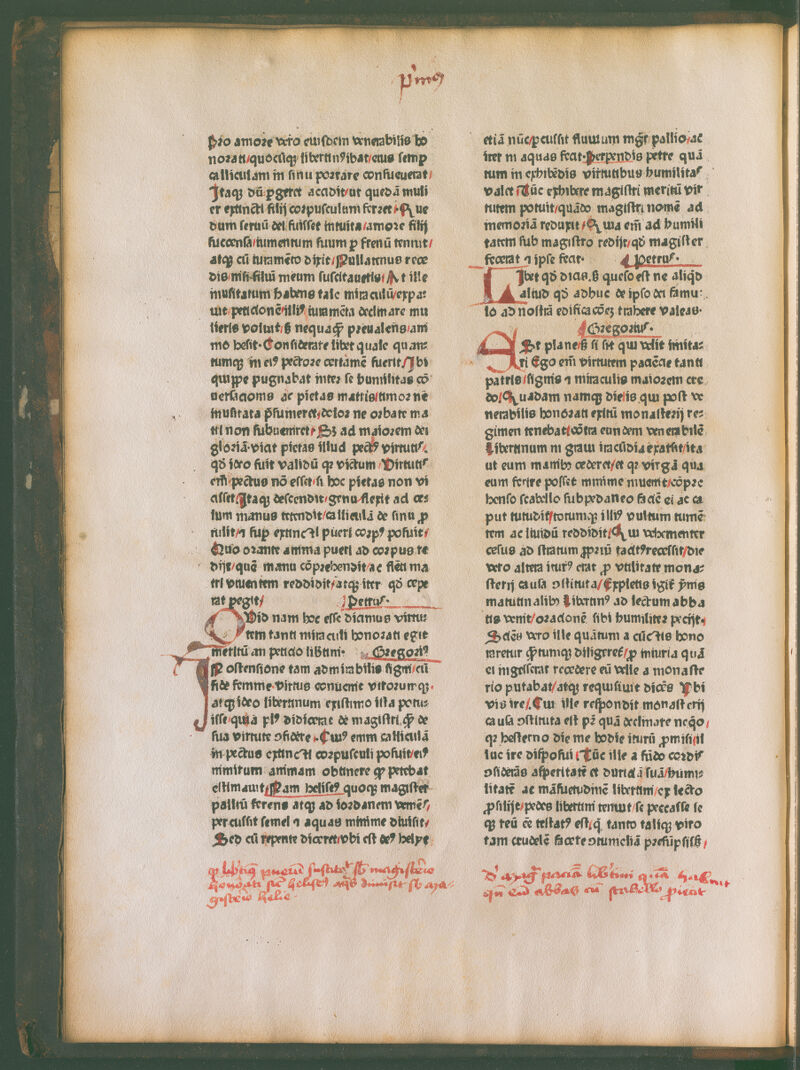 Pri̅mꝯ
Pro amore vero eiuſdem venerabilis ho
norati/quocūqꝫ libertinꝰibat/eius ſemp̱
calliculam in ſinu portare conſueuerat/
Itaqꝫ dū ꝑgeret accidit/ut quedā muli
er extincti filij corpuſculum ferret/Que
dum ſeruū dei fuiſſet intuita/amore filij
ſuccenſa/iumentum ſuum ꝑ frenū tenuit/
atqꝫ cū iuramēto dixit/Nullatenus rece
dis niſi filiū meum ſuſcitaueris/At ille
inuſitatum habens tale miraculū/expa⸗
uit/peticionē illiꝰ iuramēta declinare mu
lieris voluit/ſꝫ nequaꝙ̄ preualens/ani
mo heſit·Conſiderare libet quale quan⸗
tumqꝫ in eiꝰ pectore certamē fuerit/Ibi
quippe pugnabat inter ſe humilitas cō
uerſacionis ac pietas matris/timor ne
inuſitata p̄ſumeret/dolor ne orbate ma
tri non ſubueniret/Sꝫ ad maiorem dei
gloriā·vicit pietas illud pectꝰ virtutiſ·
qd̄ ideo fuit validū qꝛ victum/Virtutiſ
em̄ pectus nō eſſet/ſi hoc pietas non vi
ciſſet/Itaqꝫ deſcendit/genu flexit ad ce⸗
lum manus tetendit/calliculā de ſinu ꝓ
tulit/⁊ ſuꝑ extincti pueri corpꝰ poſuit/
Quo orante anima pueri ad corpus re
dijt/quē manu cōprehendit/ac flēti ma
tri viuentem reddidit/atqꝫ iter qd̄ cepe
rat pegit/ Petruſ·
Quid nam hoc eſſe dicimus virtu⸗
tem tanti miraculi honorati egit
meritū an peticio libtini· Gregoriꝰ
IN oſtenſione tam admirabilis ſigni/cū
fide femine virtus conuenit vtrorumqꝫ·
atqꝫ ideo libertinum exiſtimo iſta potu⸗
iſſe/quia plꝰ didicerat de magiſtri ꝙ̄ de
ſua virtute ↄfidere·Cuiꝰ enim calliculā
in pectus extincti corpuſculi poſuit/eiꝰ
nimirum animam obtinere ꝙ petebat
eſtimauit/Nam heliſeꝰ quoqꝫ magiſter
pallitū ferens atqꝫ ad iordanem veniēſ/
percuſſit ſemel ⁊ aquas minime diuiſit/
Sed cū repente diceret/vbi eſt deꝰ helye
etiā nūc/ꝑcuſſit fluuium mgr̄i pallio/ac
iter in aquas fecit·Perpendis petre quā
tum in exhibēdis virtutibus humilitaſ
valet/Tūc exhibere magiſtri meritū vir
tutem potuit/quādo magiſtri nomē ad
memoriā reduxit/Quia em̄ ad humili
tatem ſub magiſtro redijt/qd̄ magiſter
fecerat ⁊ ipſe fecit· Petruſ·
LIbet qd̄ dicis·ſꝫ queſo eſt ne aliqd̄
aliud qd̄ adhuc de ipſo dei famu⸗
lo ad noſtrā edificacōeꝫ trahere valeas·
Gregoriuſ·
ASt plane/ſꝫ ſi ſit qui velit imita⸗
ri Ego em̄ virtutem paciēcie tanti
patris/ſignis ⁊ miraculis maiorem cre
do/Quadam namqꝫ die/is qui poſt ve
nerabilis honorati exitū monaſterij re⸗
gimen tenebat/cōtra eundem venerabilē
Libertinum ni graui iracūdia exarſit/ita
ut eum manibꝫ cederet/et qꝛ virgā qua
eum ferire poſſet minime inuenit/cōpre
henſo ſcabello ſubpedaneo faciē ei ac ca
put tutudit/totumqꝫ illiꝰ vultum tume⸗
tem ac liuidū reddidit/Qui vehementer
ceſus ad ſtratum ꝓpriū tacitꝰreceſſit/die
vero altera iturꝰ erat ꝓ vtilitate mona⸗
ſterij cauſa ↄſtituta/Expletis igit̄ ymnis
matutinalibꝫ Libertinꝰ ad lectum abba
tis venit/oracionē ſibi humiliter pecijt·
Sciēs vero ille quātum a cūctis hono
raretur ꝙ̄tumqꝫ diligeret̄/ꝓ iniuria quā
ei ingeſſerat recedere eū velle a monaſte
rio putabat/atqꝫ requiſiuit dicēs Vbi
vis ire/Cui ille reſpondit monaſterij
cauſa ↄſtituta eſt pr̄ quā declinare neqo/
qꝛ heſterno die me hodie iturū ꝓmiſi/il
luc ire diſpoſui/Tūc ille a fūdo cordiſ
ↄſiderās aſperitatē et duriciā ſuā/humi⸗
litatē ac māſuetudinē libertini/ex lecto
ꝓſilijt/pedes libertini tenuit/ſe peccaſſe ſe
qꝫ reū eē teſtatꝰ eſt/q tanto taliqꝫ viro
tam crudelē facere ↄtumeliā preſūpſiſſꝫ/
ꝙ libtinꝰ puerū ſuſcitaꝰ ſb magiſterio
honorati ſic heliſeꝰ aqs diuiſit ſb ma⸗
giſterio helie·
libtini quā habuit
qn̄ eū abbas cū ſcabello